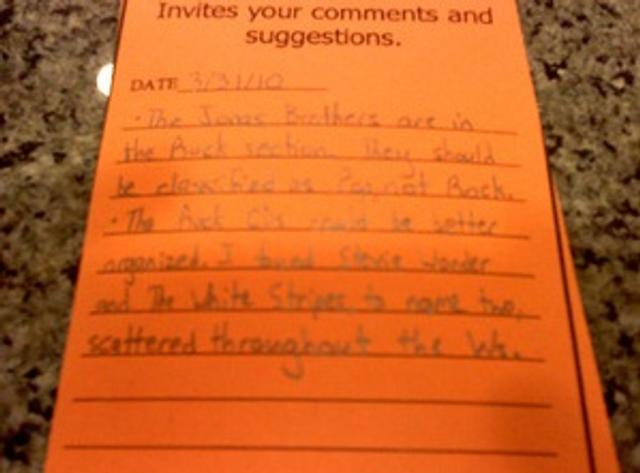 Invites your comments and
suggestions.
DATE 3/31/10
• The Jonas Brothers are in
the Rock section. They should
be classified as Pop, not Rock.
• The Rock CDs could be better
organized. I found Stevie Wonder
and The White Stripes, to name two,
scattered throughout the Ws.